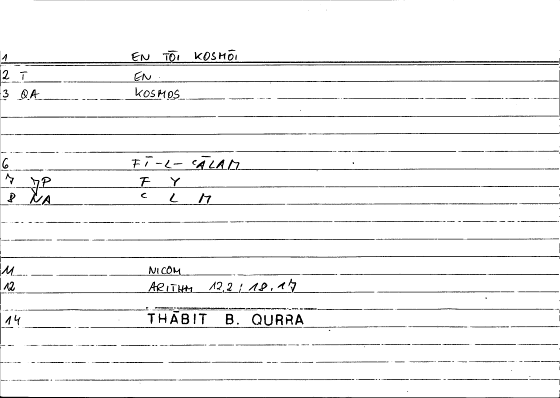 1 EN TŌI KOSMŌI
2 T EN
3 QA KOSMOS
6 FĪ-L-ʿĀLAM
7 JP F Y
8 NA ʿ L M
11 NICOM
12 ARITHM 12,2 ; 18,17
14 THĀBIT B. QURRA